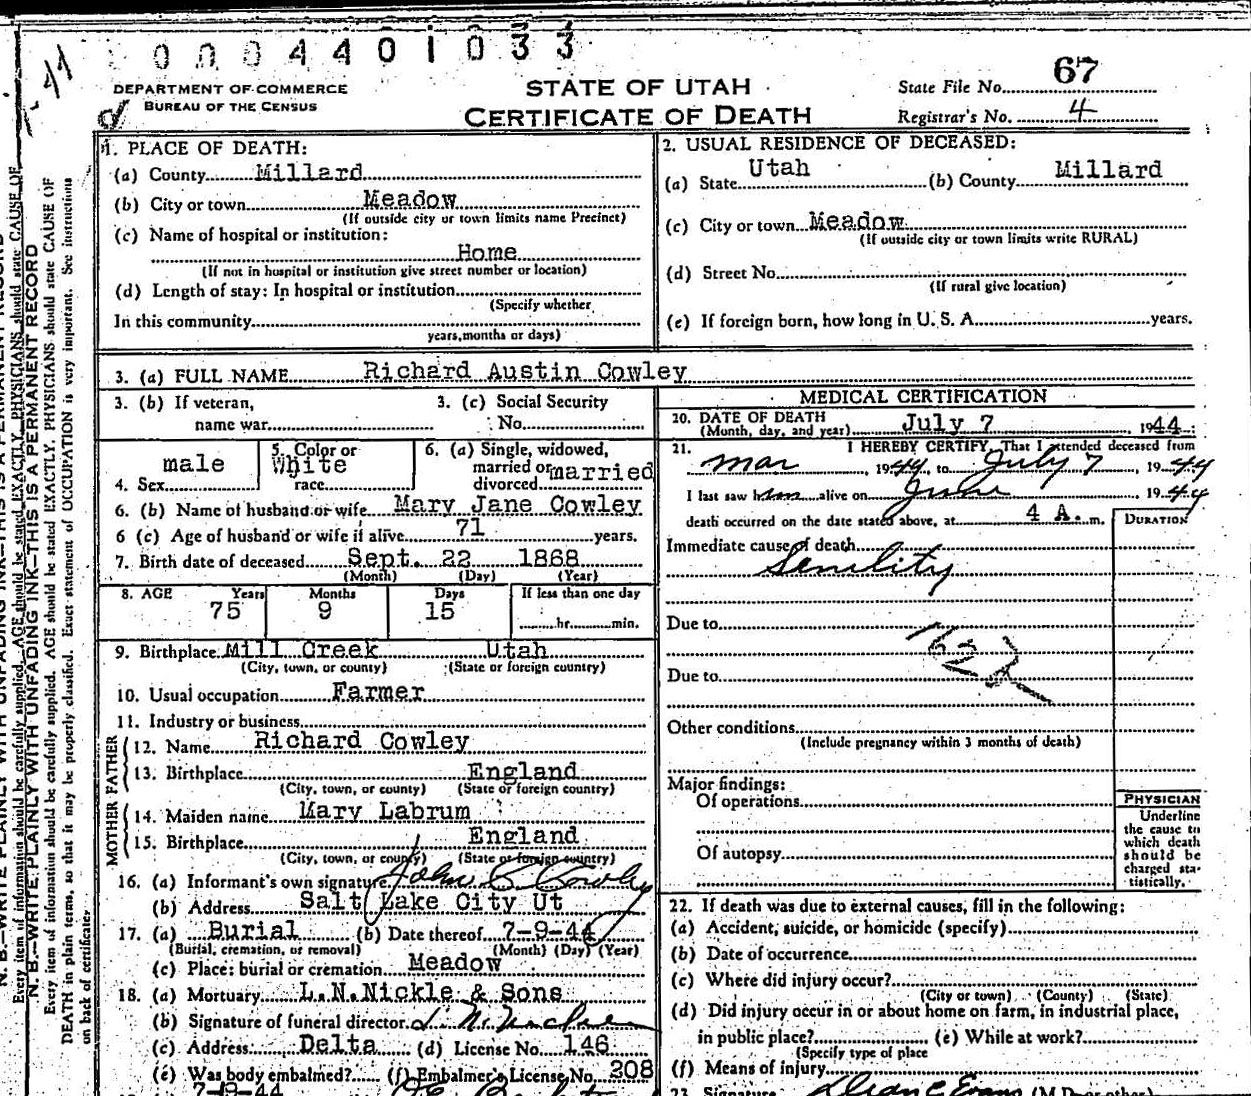 0004401033
DEPARTMENT OF COMMERCE
BUREAU OF THE CENSUS
STATE OF UTAH
CERTIFICATE OF DEATH
State File No. 67
Registrar's No. 4
1. PLACE OF DEATH:
(a) County Millard
(b) City or town Meadow
(If outside city or town limits name Precinct)
(c) Name of hospital or institution:
Home
(If not in hospital or institution give street number or location)
(d) Length of stay: In hospital or institution
(Specify whether
In this community
years, months or days)
2. USUAL RESIDENCE OF DECEASED:
(a) State Utah (b) County Millard
(c) City or town Meadow
(If outside city or town limits write RURAL)
(d) Street No.
(If rural give location)
(e) If foreign born, how long in U. S. A. years.
3. (a) FULL NAME Richard Austin Cowley
3. (b) If veteran,
name war
3. (c) Social Security
No.
4. Sex male
5. Color or
race White
6. (a) Single, widowed,
married or
divorced married
6. (b) Name of husband or wife Mary Jane Cowley
6 (c) Age of husband or wife if alive 71 years.
7. Birth date of deceased Sept. 22 1868
(Month) (Day) (Year)
8. AGE Years Months Days If less than one day
75 9 15 hr. min.
9. Birthplace Mill Creek Utah
(City, town, or county) (State or foreign country)
10. Usual occupation Farmer
11. Industry or business
FATHER
12. Name Richard Cowley
13. Birthplace England
(City, town, or county) (State or foreign country)
MOTHER
14. Maiden name Mary Labrum
15. Birthplace England
(City, town, or county) (State or foreign country)
16. (a) Informant's own signature John C Cowley
(b) Address Salt Lake City Ut
17. (a) Burial (b) Date thereof 7-9-44
(Burial, cremation, or removal) (Month) (Day) (Year)
(c) Place: burial or cremation Meadow
18. (a) Mortuary L.N.Nickle & Sons
(b) Signature of funeral director
(c) Address Delta (d) License No. 146
(e) Was body embalmed? (f) Embalmer's License No. 208
MEDICAL CERTIFICATION
20. DATE OF DEATH
(Month, day, and year) July 7 1944
21. I HEREBY CERTIFY, That I attended deceased from
Mar 1944, to July 7, 1944
I last saw him alive on June 1944
death occurred on the date stated above, at 4 A. m.
DURATION
Immediate cause of death
Senility
Due to
162
Due to
Other conditions
(Include pregnancy within 3 months of death)
Major findings:
Of operations
Of autopsy
PHYSICIAN
Underline
the cause to
which death
should be
charged sta-
tistically.
22. If death was due to external causes, fill in the following:
(a) Accident, suicide, or homicide (specify)
(b) Date of occurrence
(c) Where did injury occur?
(City or town) (County) (State)
(d) Did injury occur in or about home on farm, in industrial place,
in public place? (e) While at work?
(Specify type of place
(f) Means of injury
23. Signature Evans (M.D. or other)
N. B.—WRITE PLAINLY WITH UNFADING INK—THIS IS A PERMANENT RECORD
Every item of information should be carefully supplied. AGE should be stated EXACTLY. PHYSICIANS should state CAUSE OF
DEATH in plain terms, so that it may be properly classified. Exact statement of OCCUPATION is very important. See instructions
on back of certificate.